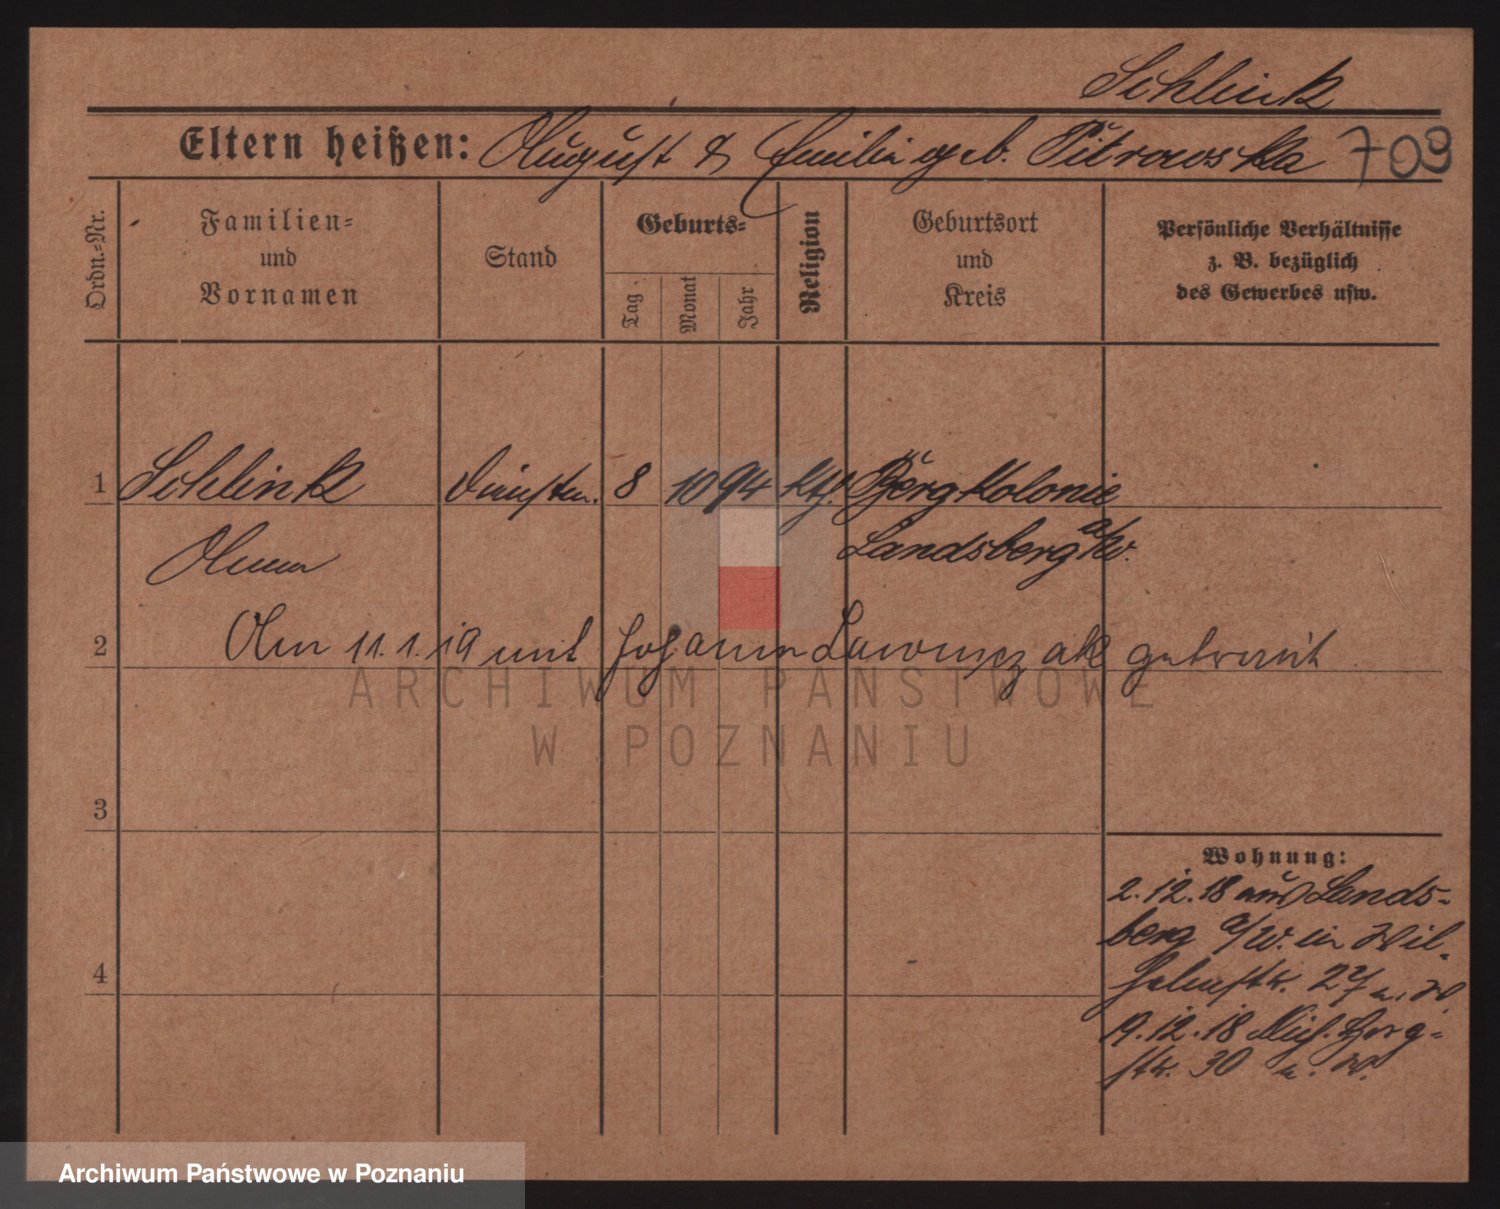 Schlink
Eltern heißen: August & Emilie geb. Pitrowska 709
Ordn.-Nr.
Familien-
und
Vornamen
Stand
Geburts-
Tag
Monat
Jahr
Religion
Geburtsort
und
Kreis
Persönliche Verhältnisse
z. B. bezüglich
des Gewerbes usw.
1 Schlink Dienstm. 8 10 94 kth. Bergkolonie
Anna Landsberg a/W.
2 Am 11.1.19 mit Johann Lawniczak getraut
ARCHIWUM PAŃSTWOWE
W POZNANIU
3
Wohnung:
2.12.18 aus Lands-
berg a/W. in Wil-
helmstr. 27 u. W.
4
19.12.18 Berg-
str. 30 u. W.
Archiwum Państwowe w Poznaniu